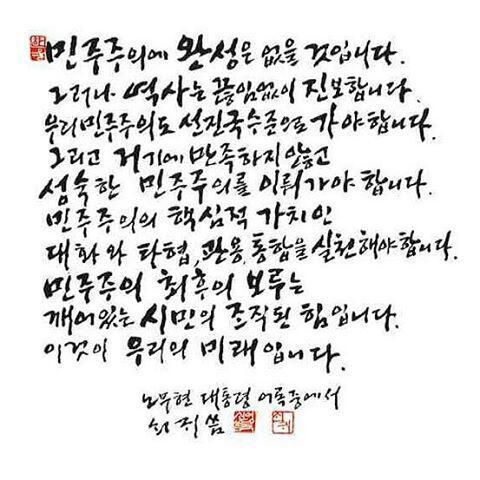 민주주의에 완성은 없을 것입니다.
그러나 역사는 끊임없이 진보합니다.
우리민주주의도 선진국수준으로 가야합니다.
그리고 거기에 만족하지않고
성숙한 민주주의를 이뤄가야 합니다.
민주주의의 핵심적 가치인
대화와 타협, 관용, 통합을 실천해야합니다.
민주주의 최후의 보루는
깨어있는 시민의 조직된 힘입니다.
이것이 우리의 미래입니다.
노무현 대통령 어록중에서
씀